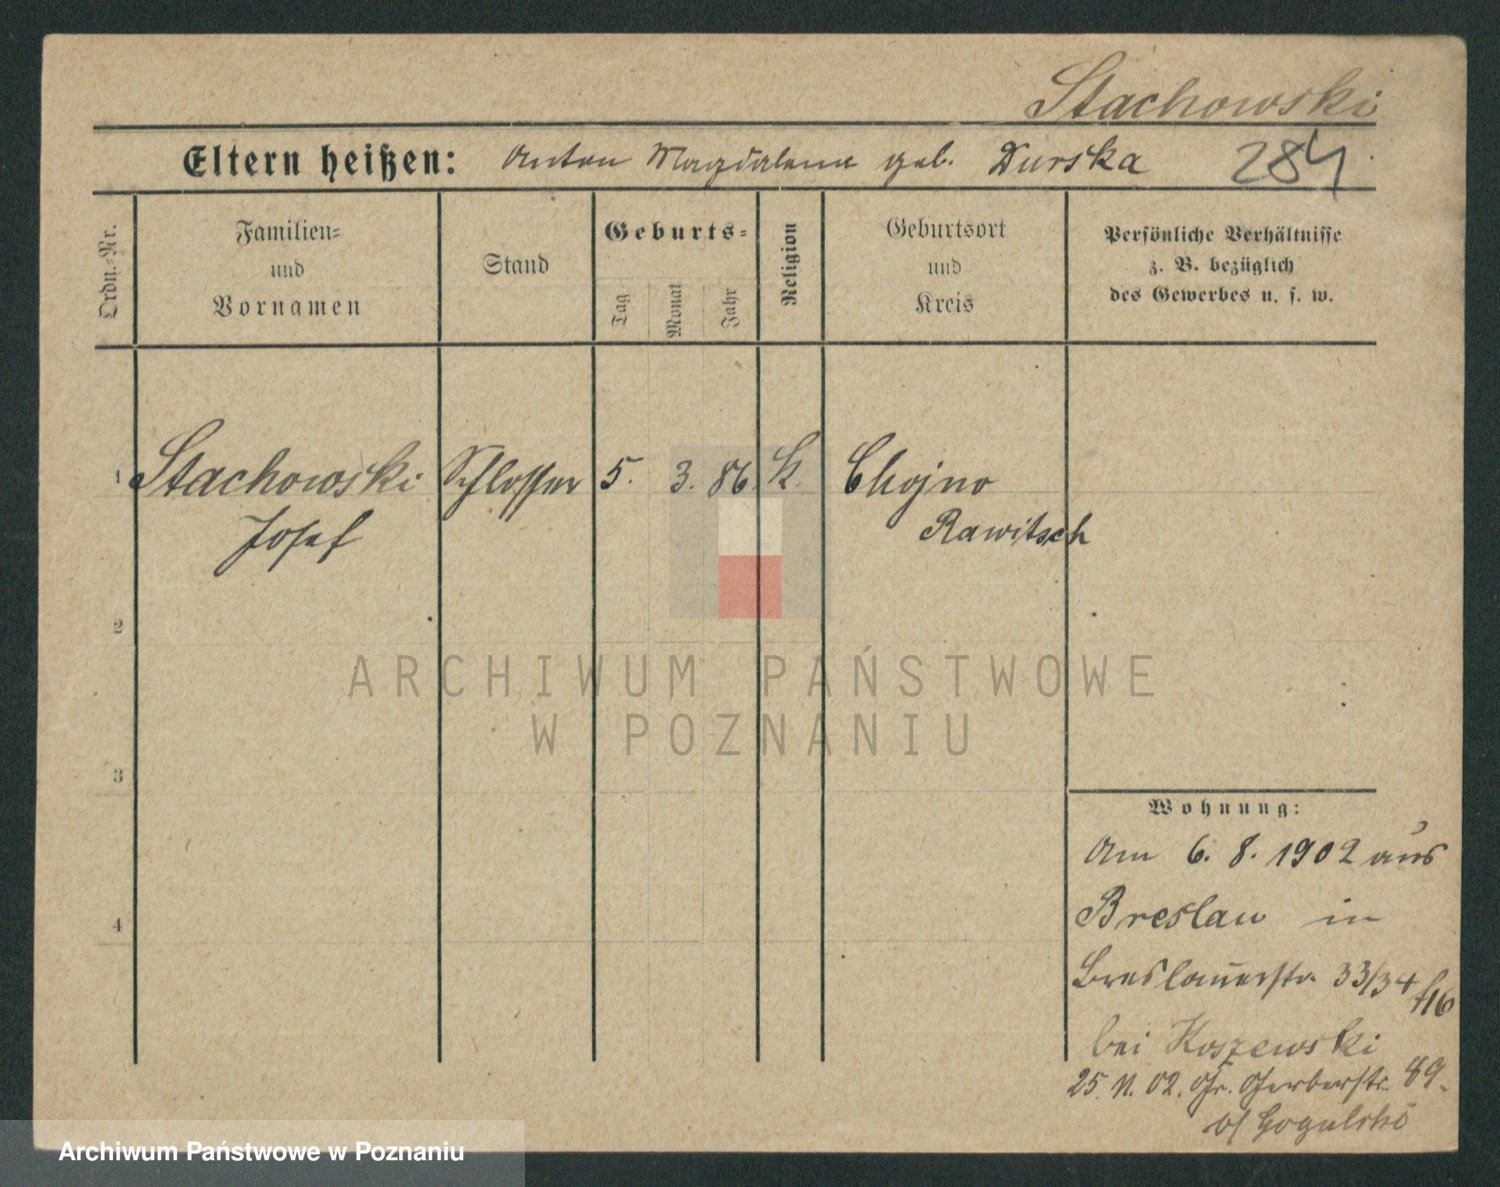 Stachowski
Eltern heißen: Anton Magdalena geb. Durska 284
Ordn.-Nr.
Familien-
und
Vornamen
Stand
Geburts-
Tag
Monat
Jahr
Religion
Geburtsort
und
Kreis
Persönliche Verhältnisse
z. B. bezüglich
des Gewerbes u. s. w.
1 Stachowski Schlosser 5. 3. 86. K. Chojno
Josef Rawitsch
2
3
4
Wohnung:
Am 6. 8. 1902 aus
Breslau in
Breslauerstr 33/34
bei Koszewski
25. 11. 02. Gr. Gerberstr. 89.
b/ Gogulski
ARCHIWUM PAŃSTWOWE
W POZNANIU
Archiwum Państwowe w Poznaniu